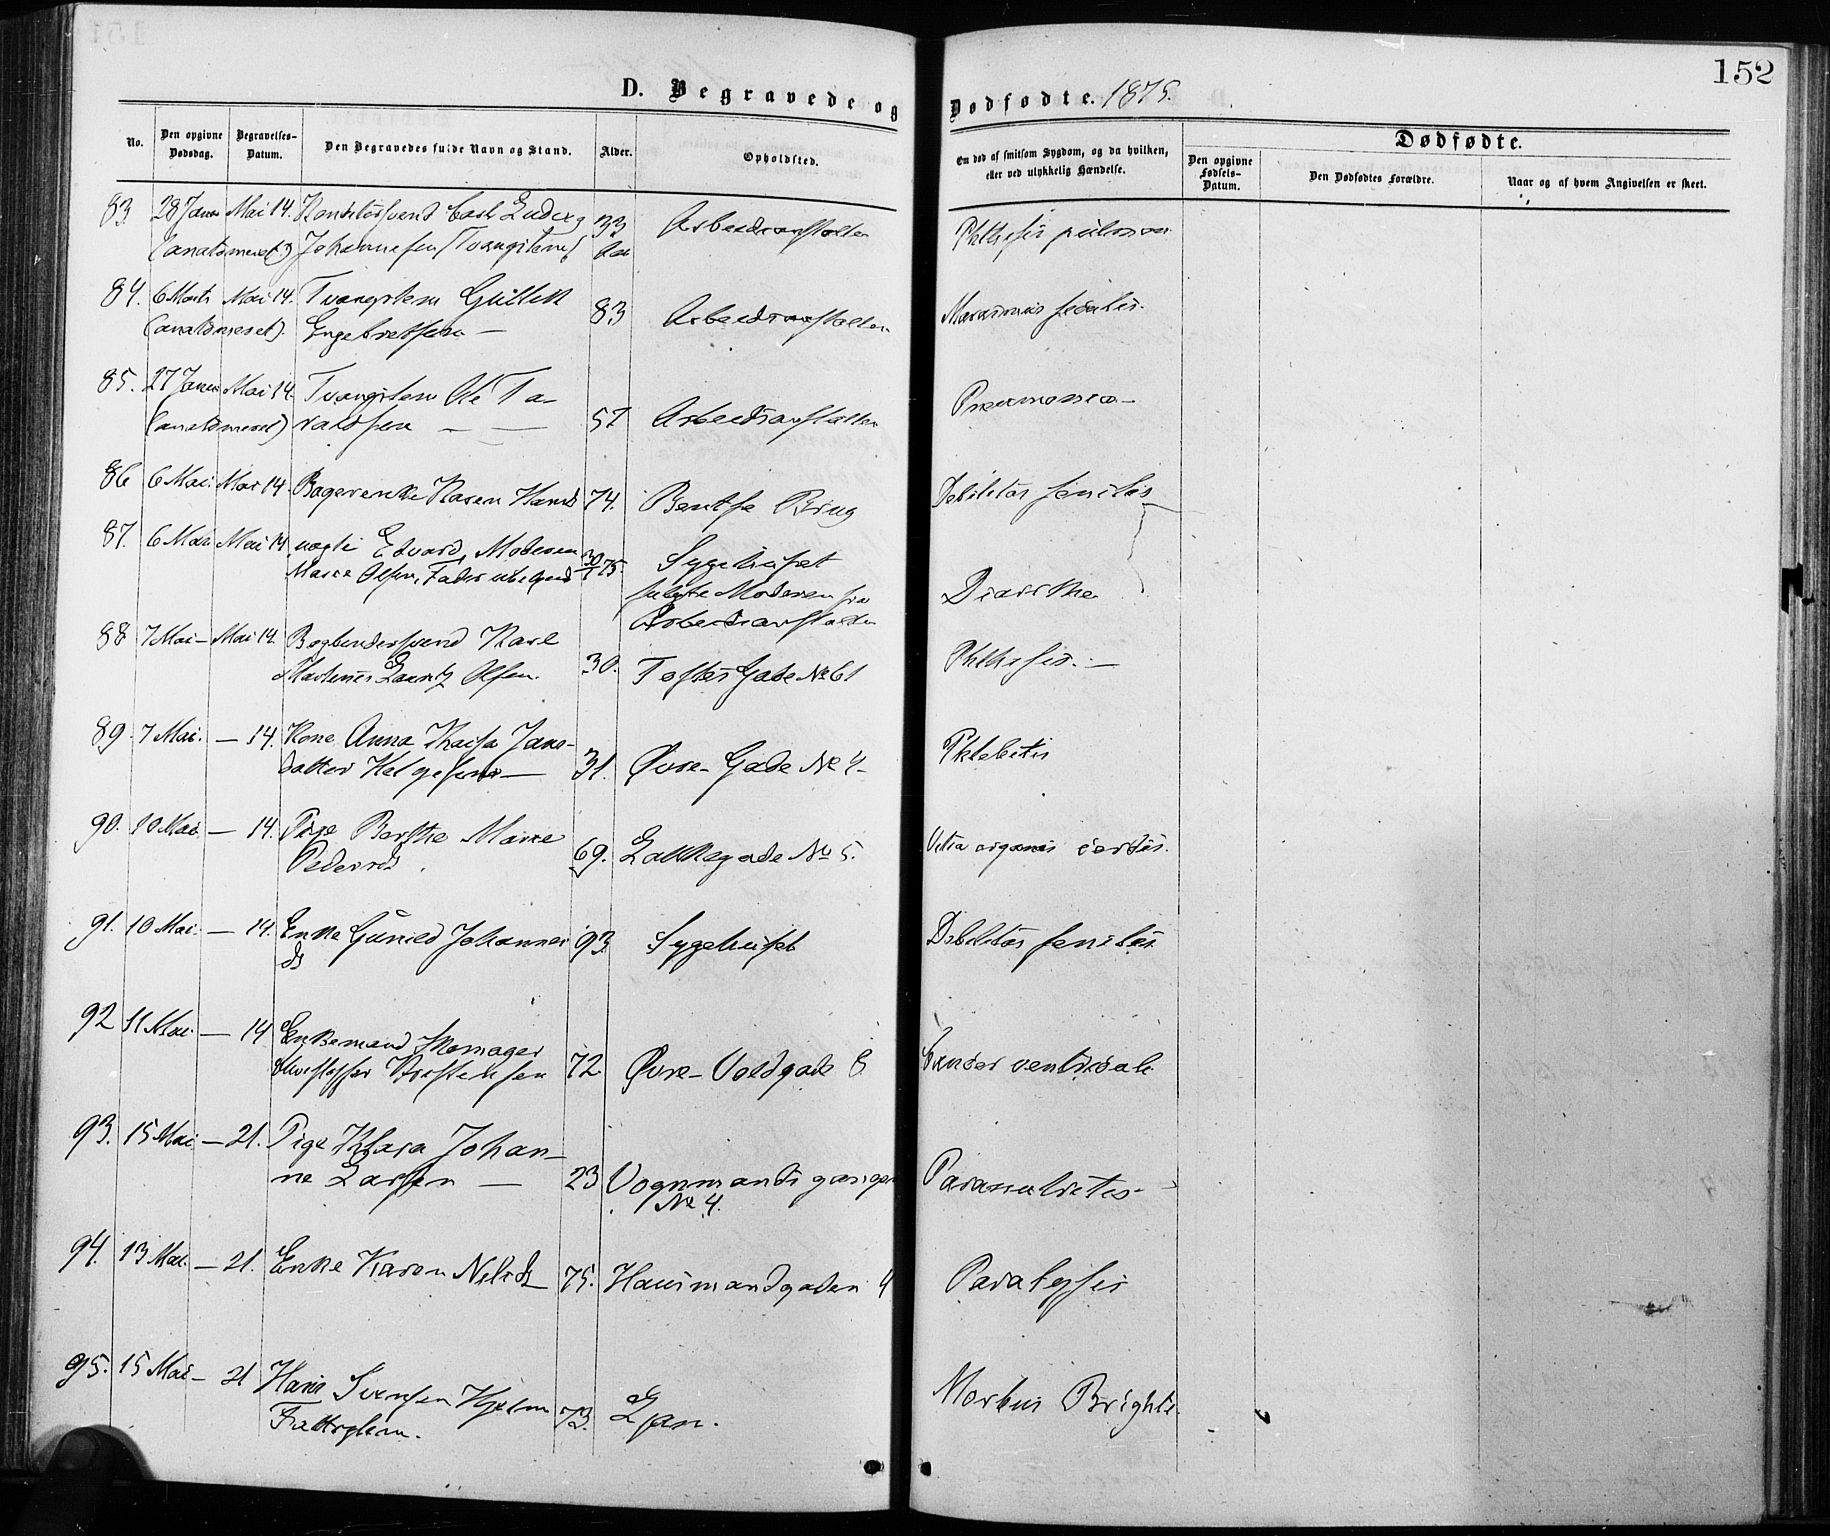 152
D. Begravede og Dødfødte. 1875.
No.
Den opgivne Dødsdag.
Begravelses-Datum.
Den Begravedes fulde Navn og Stand.
Alder.
Opholdsted.
Om død af smitsom Sygdom, og da hvilken, eller ved ulykkelig Hændelse.
Dødfødte.
Den opgivne Fødsels-Datum.
Den Dødfødtes Forældre.
Naar og af hvem Angivelsen er skeet.
83 28 Janu Mai 14. Konditorsvend Carl Ludvig 33 Arbeidsanstalten Phthisis pulmon
(anatomeret) Johannesen (Tvangslem)
84. 6 Marts Mai 14. Tvangslem Gullik 83 Arbeidsanstalten Marasmus senilis.
(anatomeret). Engebretsen —
85. 27 Janu Mai 14. Tvangslem Ole To- 57 Arbeidsanstalten Pneumonia —
(anatomeret) valdsen — —
86 6 Mai. Mai 14. Bagerenke Karen Hansd 74. Bentse Brug Debilitas senilis
87. 6 Mai Mai 14 uægte Edvard, Moderen 30/1 75. Sygehuset Diarrhe
Marie Olsen, Fader ubekjend
fulgte Moderen fra
Arbeidsanstalten
88 7 Mai — Mai 14. Bogbindersvend Karl 30. Toftes Gade No 61 Phthisis. —
Martinius Lauritz Olsen.
89. 7 Mai. — 14. Kone Anna Kaisa Jans- 31. Øvre-Gade No 4- Phlebitis
datter Helgesen —
90. 10 Mai. — 14. Pige Berthe Marie 69. Lakkegade No 5. Vitia organis cordis.
Pedersd.
91. 10 Mai. — 14. Enke Gunild Johannes 93. Sygehuset Debilitas senilis
ds
92 11 Mai. — 14 Enkemand Skomager 72 Øvre-Voldgade 8 Cancer ventriculi
Christoffer Torstensen
93. 15 Mai — 21. Pige Klara Johan- 23 Vognmandsgangen
ne Larsen — No 4.
94. 13 Mai. — 21. Enke Karen Nilsd 75. Hausmandsgaden 4 Paralysis
95. 15 Mai — 21 Hans Svensen Hjelm 73. Ljan. Morbus Brighti.
Fattiglem.